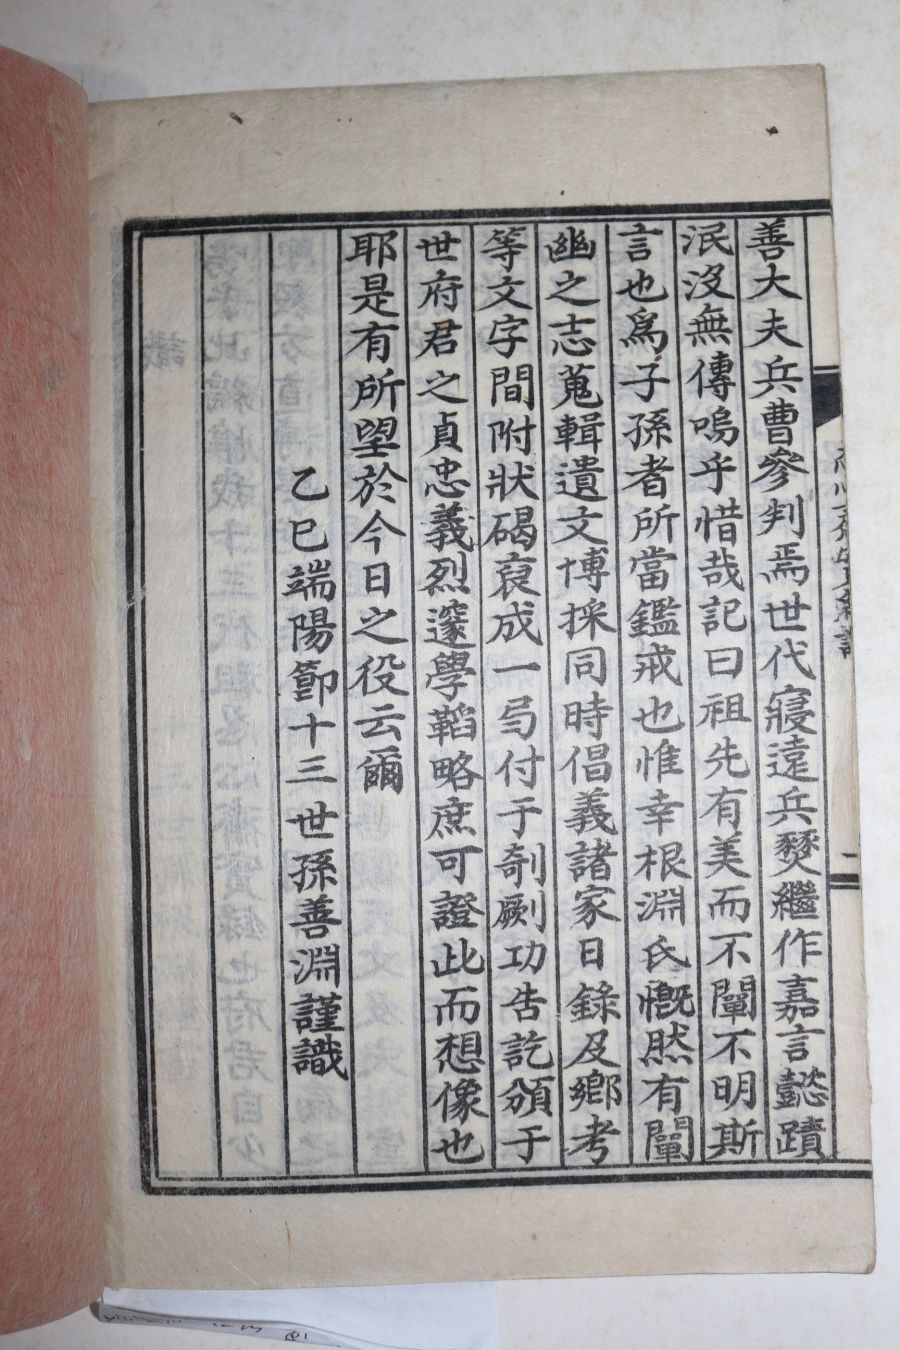 善大夫兵曹參判焉世代寢遠兵燹繼作嘉言懿蹟
泯沒無傳嗚乎惜哉記曰祖先有美而不闡不明斯
言也爲子孫者所當鑑戒也惟幸根淵氏慨然有闡
幽之志蒐輯遺文博採同時倡義諸家日錄及鄉考
等文字間附狀碣裒成一弓付于剞劂功告訖頒于
世府君之貞忠義烈邃學韜略庶可證此而想像也
耶是有所望於今日之役云爾
乙巳端陽節十三世孫善淵謹識
二